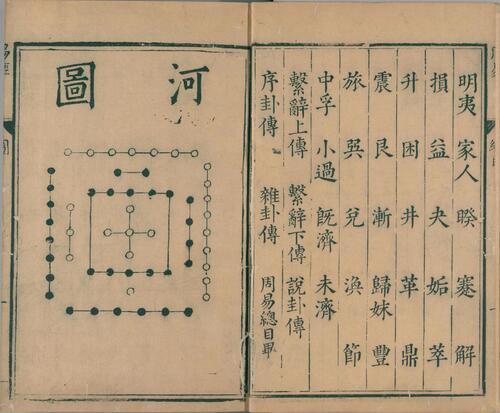 明夷 家人 暌 蹇 解
損 益 夬 姤 萃
升 困 井 革 鼎
震 艮 漸 歸妹 豐
旅 巽 兌 渙 節
中孚 小過 旣濟 未濟
繫辭上傳 繫辭下傳 說卦傳
序卦傳 雜卦傳 周易總目畢
河圖
易經 圖